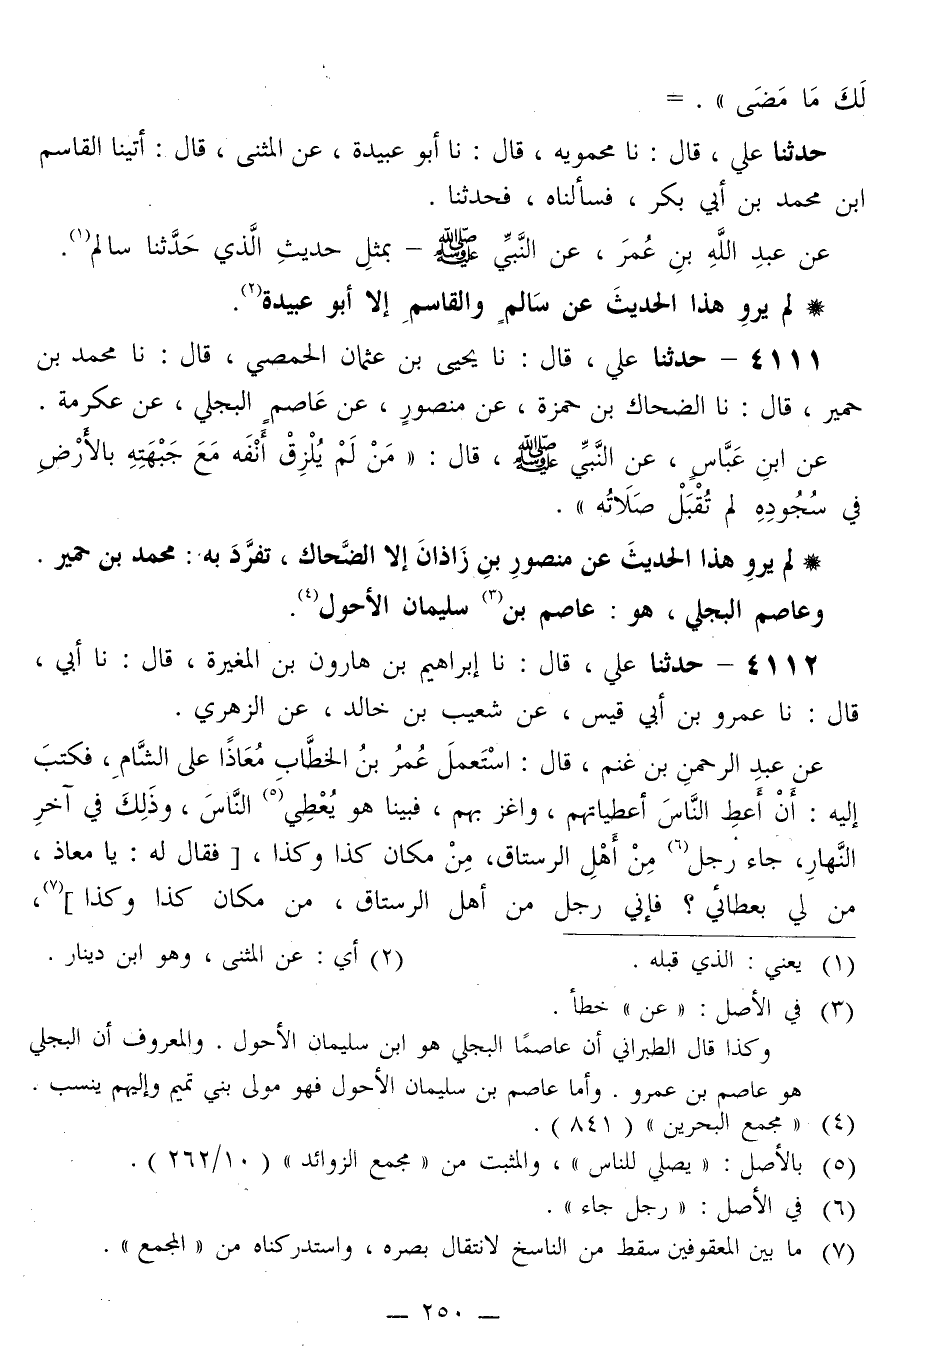 لَكَ مَا مَضَى » . =
حدثنا علي ، قال : نا محمويه ، قال : نا أبو عبيدة ، عن المثنى ، قال : أتينا القاسم
ابن محمد بن أبي بكر ، فسألناه ، فحدثنا .
عن عبدِ اللَّهِ بنِ عُمرَ ، عن النَّبيِّ ﷺ – بمثلِ حديثِ الَّذي حَدَّثنا سالم(١).
* لم يروِ هذا الحديثَ عن سَالمٍ والقاسمِ إلا أبو عبيدة(٢).
٤١١١ – حدثنا علي ، قال : نا يحيى بن عثمان الحمصي ، قال : نا محمد بن
حمير ، قال : نا الضحاك بن حمزة ، عن منصورٍ ، عن عَاصمٍ البجلي ، عن عكرمة .
عن ابنِ عَبَّاسٍ ، عن النَّبيِّ ﷺ ، قال : « مَنْ لَمْ يُلْزِقْ أَنْفَه مَعَ جَبْهَتِهِ بالأَرْضِ
في سُجُودِهِ لم تُقْبَلْ صَلَاتُه » .
* لم يروِ هذا الحديثَ عن منصورِ بنِ زَاذانَ إلا الضَّحاك ، تفرَّدَ به : محمد بن حمير .
وعاصم البجلي ، هو : عاصم بن(٣) سليمان الأحول(٤).
٤١١٢ – حدثنا علي ، قال : نا إبراهيم بن هارون بن المغيرة ، قال : نا أبي ،
قال : نا عمرو بن أبي قيس ، عن شعيب بن خالد ، عن الزهري .
عن عبدِ الرحمنِ بن غنم ، قال : اسْتَعملَ عُمرُ بنُ الخطَّابِ مُعَاذًا على الشَّامِ ، فكتبَ
إليه : أَنْ أَعطِ النَّاسَ أعطياتهم ، واغز بهم ، فبينا هو يُعْطِي(٥) النَّاسَ ، وذَلِكَ في آخرِ
النَّهارِ، جاء رجل(٦) مِنْ أَهْلِ الرستاق، مِنْ مكان كذا وكذا ، [ فقال له : يا معاذ ،
من لي بعطائي ؟ فإني رجل من أهل الرستاق ، من مكان كذا وكذا ](٧)،
(١) يعني : الذي قبله . (٢) أي : عن المثنى ، وهو ابن دينار .
(٣) في الأصل : « عن » خطأ .
وكذا قال الطبراني أن عاصمًا البجلي هو ابن سليمان الأحول . والمعروف أن البجلي
هو عاصم بن عمرو . وأما عاصم بن سليمان الأحول فهو مولى بني تميم وإليهم ينسب .
(٤) « مجمع البحرين » ( ٨٤١ ) .
(٥) بالأصل : « يصلي للناس » ، والمثبت من « مجمع الزوائد » ( ٢٦٢/١٠ ) .
(٦) في الأصل : « رجل جاء » .
(٧) ما بين المعقوفين سقط من الناسخ لانتقال بصره ، واستدركناه من « المجمع » .
— ٢٥٠ —